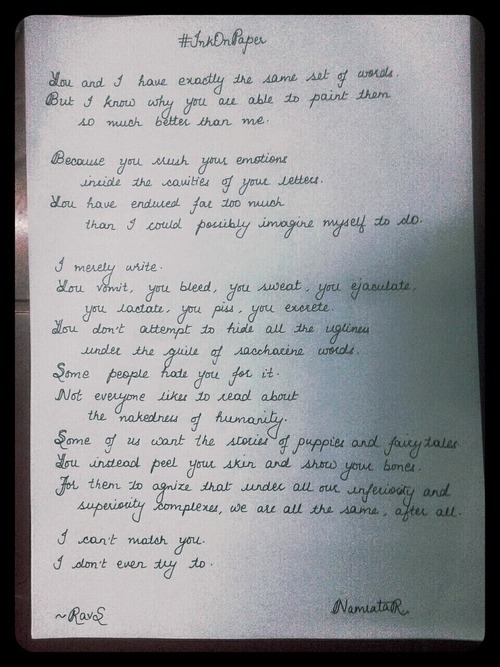 #InkOnPaper
You and I have exactly the same set of words.
But I know why you are able to paint them
so much better than me.
Because you crush your emotions
inside the cavities of your letters.
You have endured far too much
than I could possibly imagine myself to do.
I merely write.
You vomit, you bleed, you sweat, you ejaculate,
you lactate, you piss, you excrete.
You don't attempt to hide all the ugliness
under the guile of saccharine words.
Some people hate you for it.
Not everyone likes to read about
the nakedness of humanity.
Some of us want the stories of puppies and fairytales
You instead peel your skin and show your bones.
For them to agnize that under all our inferiority and
superiority complexes, we are all the same, after all.
I can't match you.
I don't even try to.
~RavS
NamrataR.